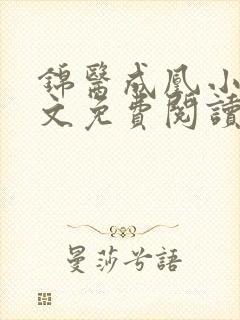 錦醫成凰小
文免費閱讀
曼莎兮語